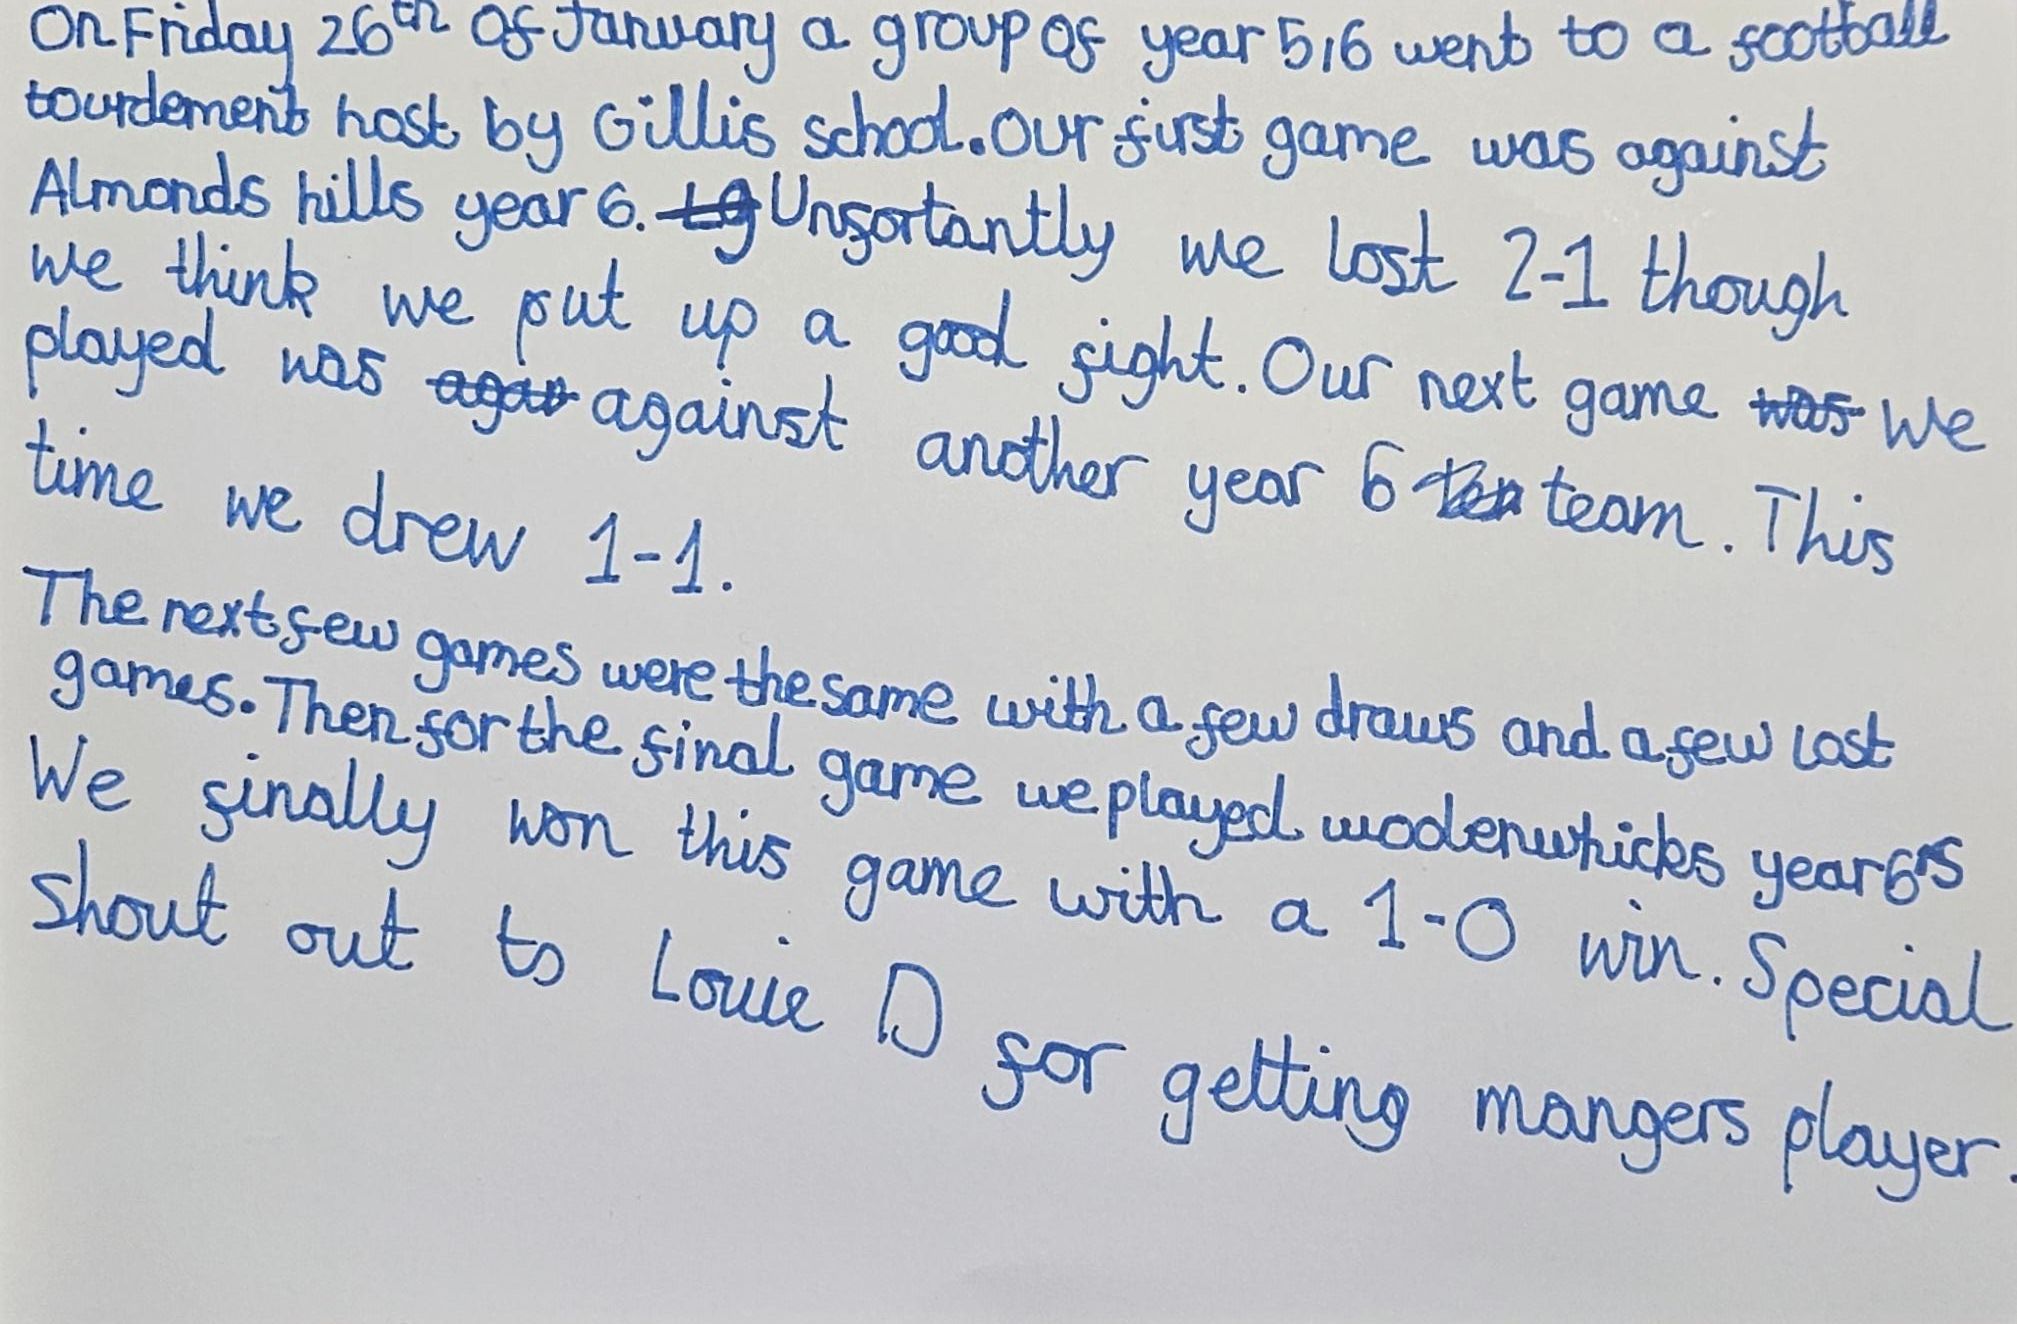 On Friday 26th of January a group of year 5,6 went to a football
tourdement host by Gillis school. Our first game was against
Almonds hills year 6. Lg Unfortantly we lost 2-1 though
we think we put up a good fight. Our next game was we
played was agan against another year 6 tea team. This
time we drew 1-1.
The next few games were the same with a few draws and a few lost
games. Then for the final game we played wodenwhicks year 6rs
We finally won this game with a 1-0 win. Special
shout out to Louie D for getting mangers player.